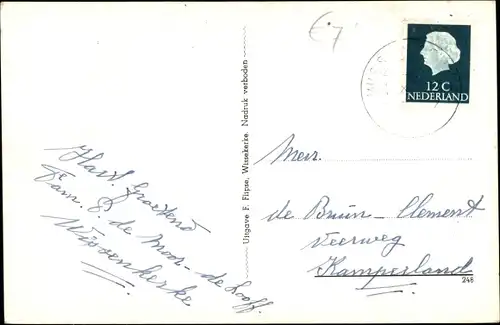 €7
WISS
12 C
NEDERLAND
Uitgave F. Flipse, Wissekerke. Nadruk verboden
Hart. Groetend
Fam. P. de Moor - de Looff.
Wissenkerke
Mevr.
de Bruin - Clement
Veerweg
Kamperland
246